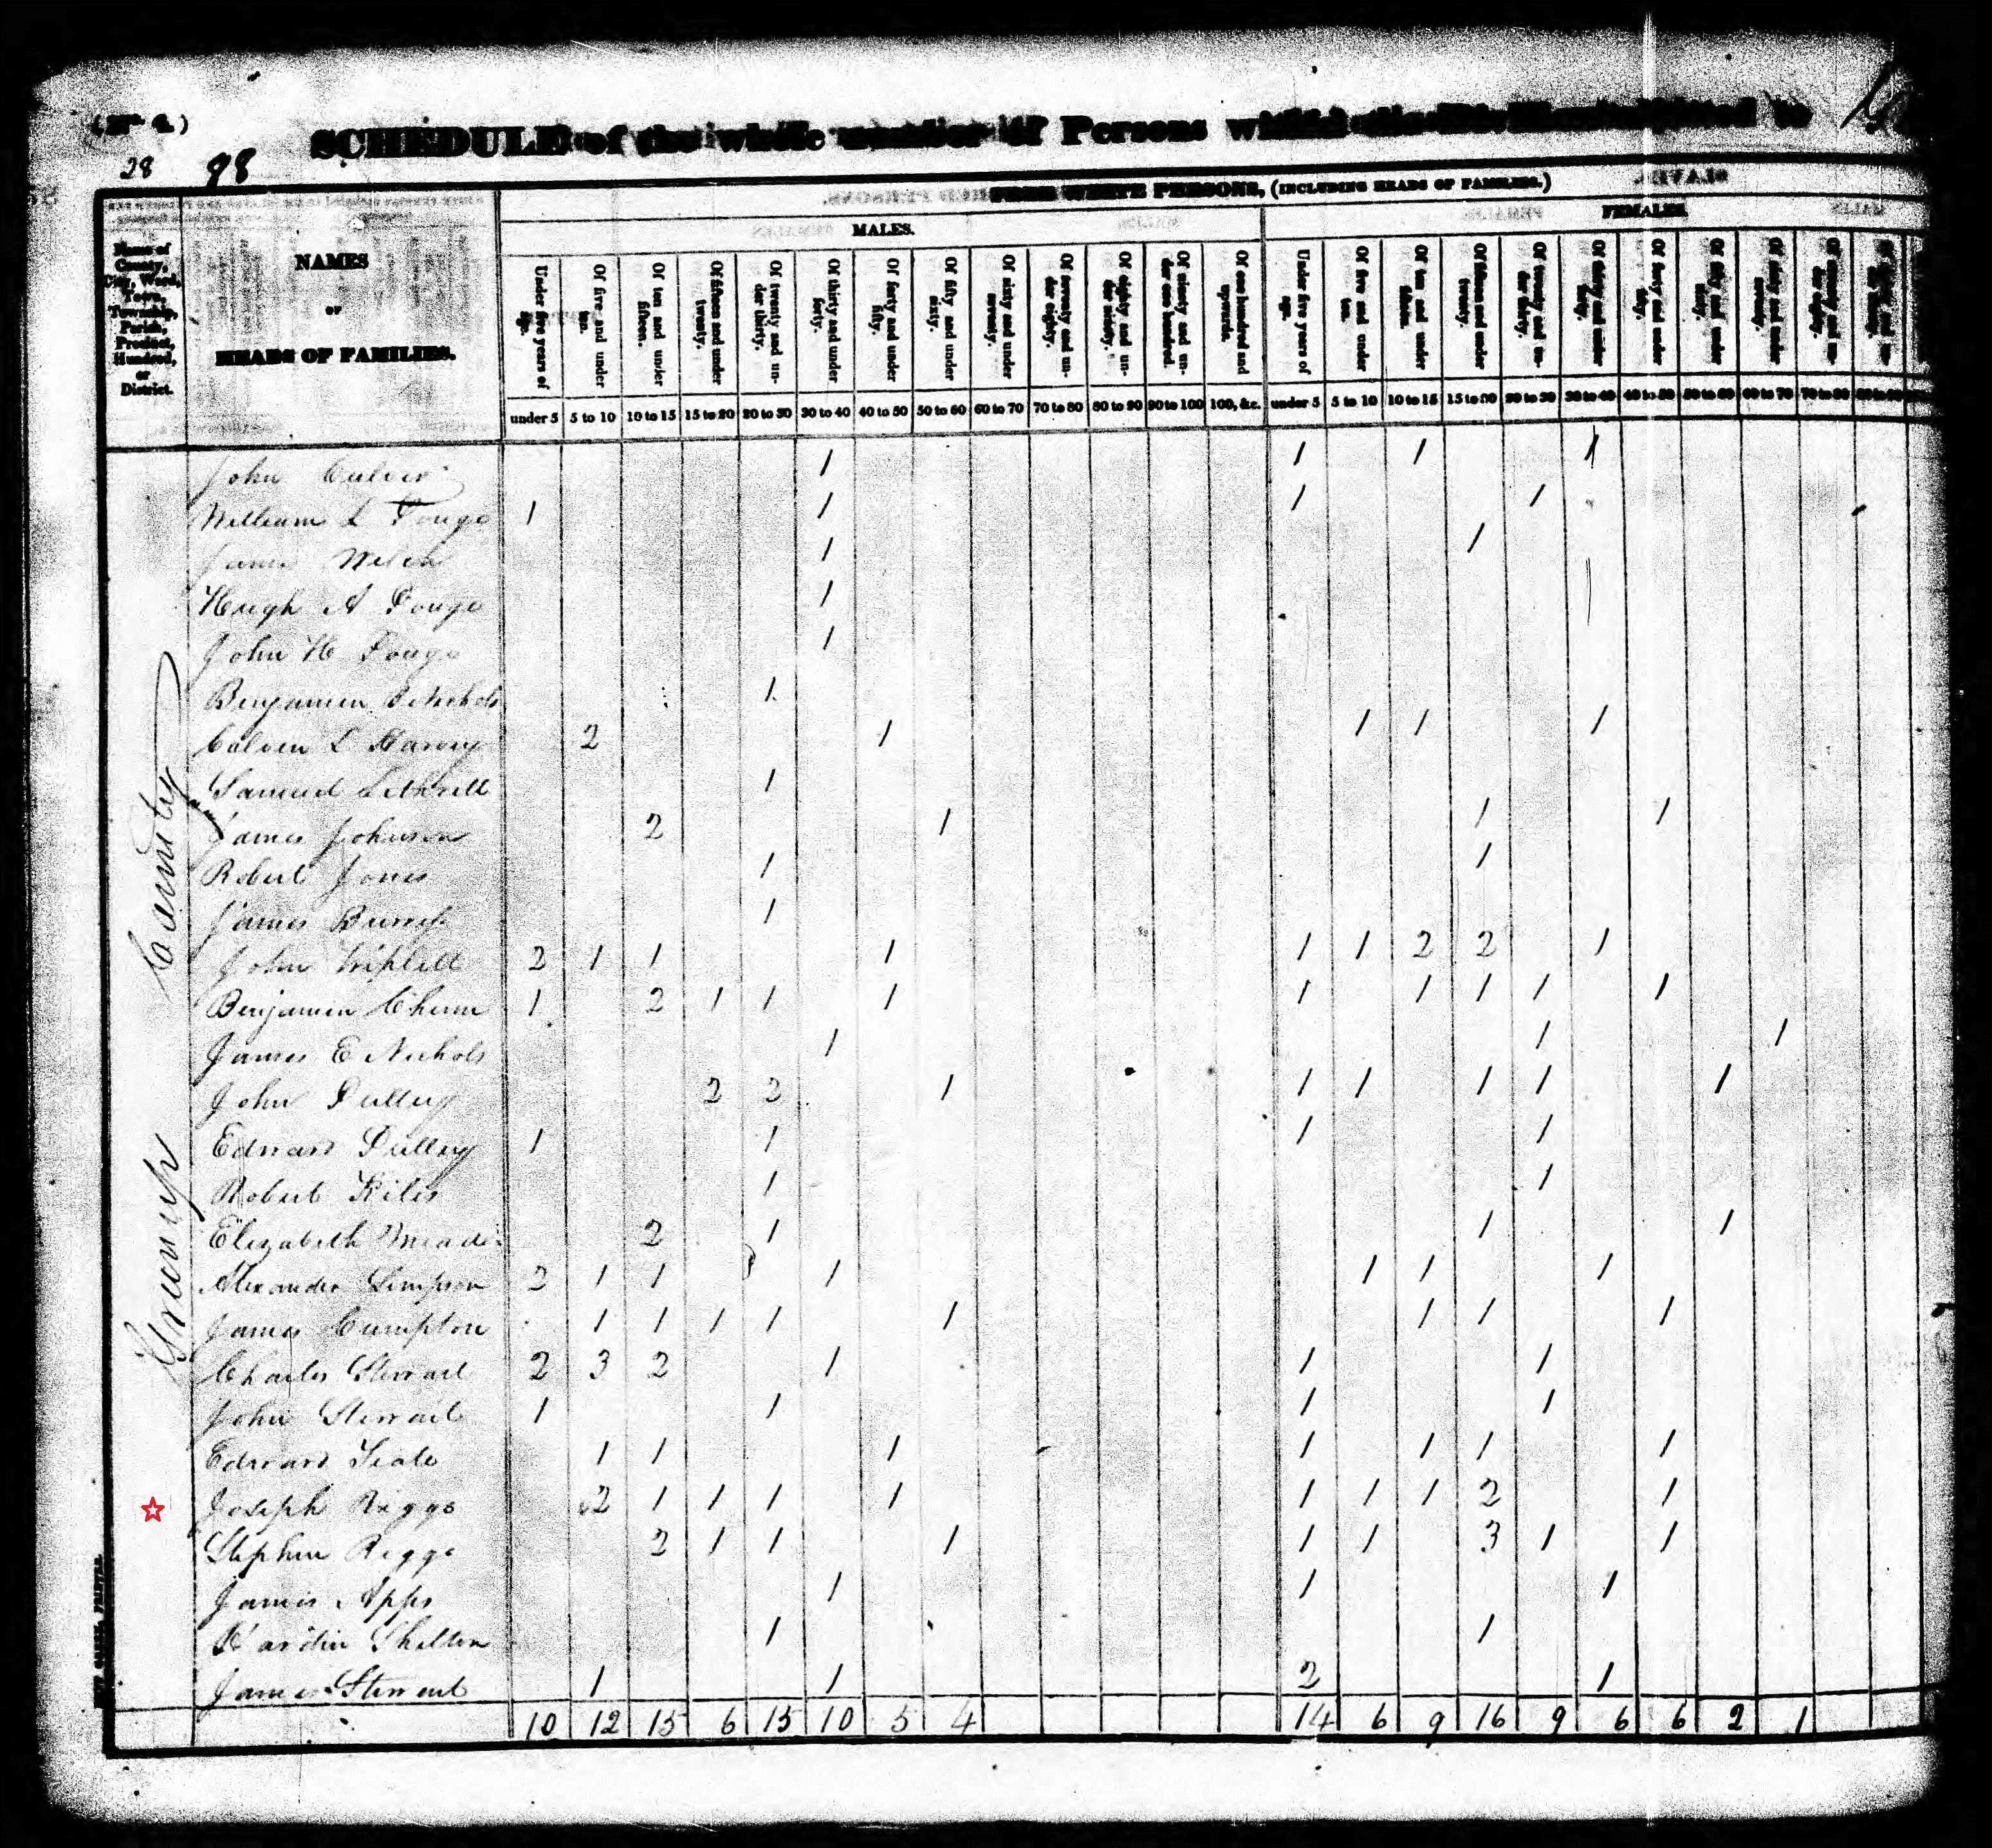 (No. 4.)
28 98
SCHEDULE of the whole number of Persons within
FREE WHITE PERSONS, (INCLUDING HEADS OF FAMILIES.)
MALES. FEMALES.
Name of County, City, Ward, Town, Township, Parish, Precinct, Hundred, or District.
NAMES
OF
HEADS OF FAMILIES.
Under five years of age. Of five and under ten. Of ten and under fifteen. Of fifteen and under twenty. Of twenty and under thirty. Of thirty and under forty. Of forty and under fifty. Of fifty and under sixty. Of sixty and under seventy. Of seventy and under eighty. Of eighty and under ninety. Of ninety and under one hundred. Of one hundred and upwards. Under five years of age. Of five and under ten. Of ten and under fifteen. Of fifteen and under twenty. Of twenty and under thirty. Of thirty and under forty. Of forty and under fifty. Of fifty and under sixty. Of sixty and under seventy. Of seventy and under eighty.
under 5 5 to 10 10 to 15 15 to 20 20 to 30 30 to 40 40 to 50 50 to 60 60 to 70 70 to 80 80 to 90 90 to 100 100, &c. under 5 5 to 10 10 to 15 15 to 20 20 to 30 30 to 40 40 to 50 50 to 60 60 to 70 70 to 80
Greenup County
John Culver 1 1 1 1
William L 1 1 1 1
James 1 1
Hugh A 1 1
John H 1
Benjamin Nichols 1
Calvin L 2 1 1 1 1
Samuel 1
James Johnson 2 1 1 1
Robert Jones 1 1
James 1
John Triplett 2 1 1 1 1 1 2 2 1
Benjamin Chinn 1 2 1 1 1 1 1 1 1 1
James E Nichols 1 1 1
John 2 2 1 1 1 1 1 1
Edward 1 1 1 1
Robert 1 1
Elizabeth Meade 2 1 1 1
Alexander Simpson 2 1 1 1 1 1 1
James Cumpton 1 1 1 1 1 1 1 1
Charles Stewart 2 3 2 1 1 1
John Stewart 1 1 1 1
Edward 1 1 1 1 1 1 1
Joseph Riggs 2 1 1 1 1 1 1 1 2 1
Stephen Riggs 2 1 1 1 1 1 3 1 1
James Apps 1 1 1
Hardin Shelton 1 1
James Stewart 1 1 2 1
10 12 15 6 15 10 5 4 14 6 9 16 9 6 6 2 1